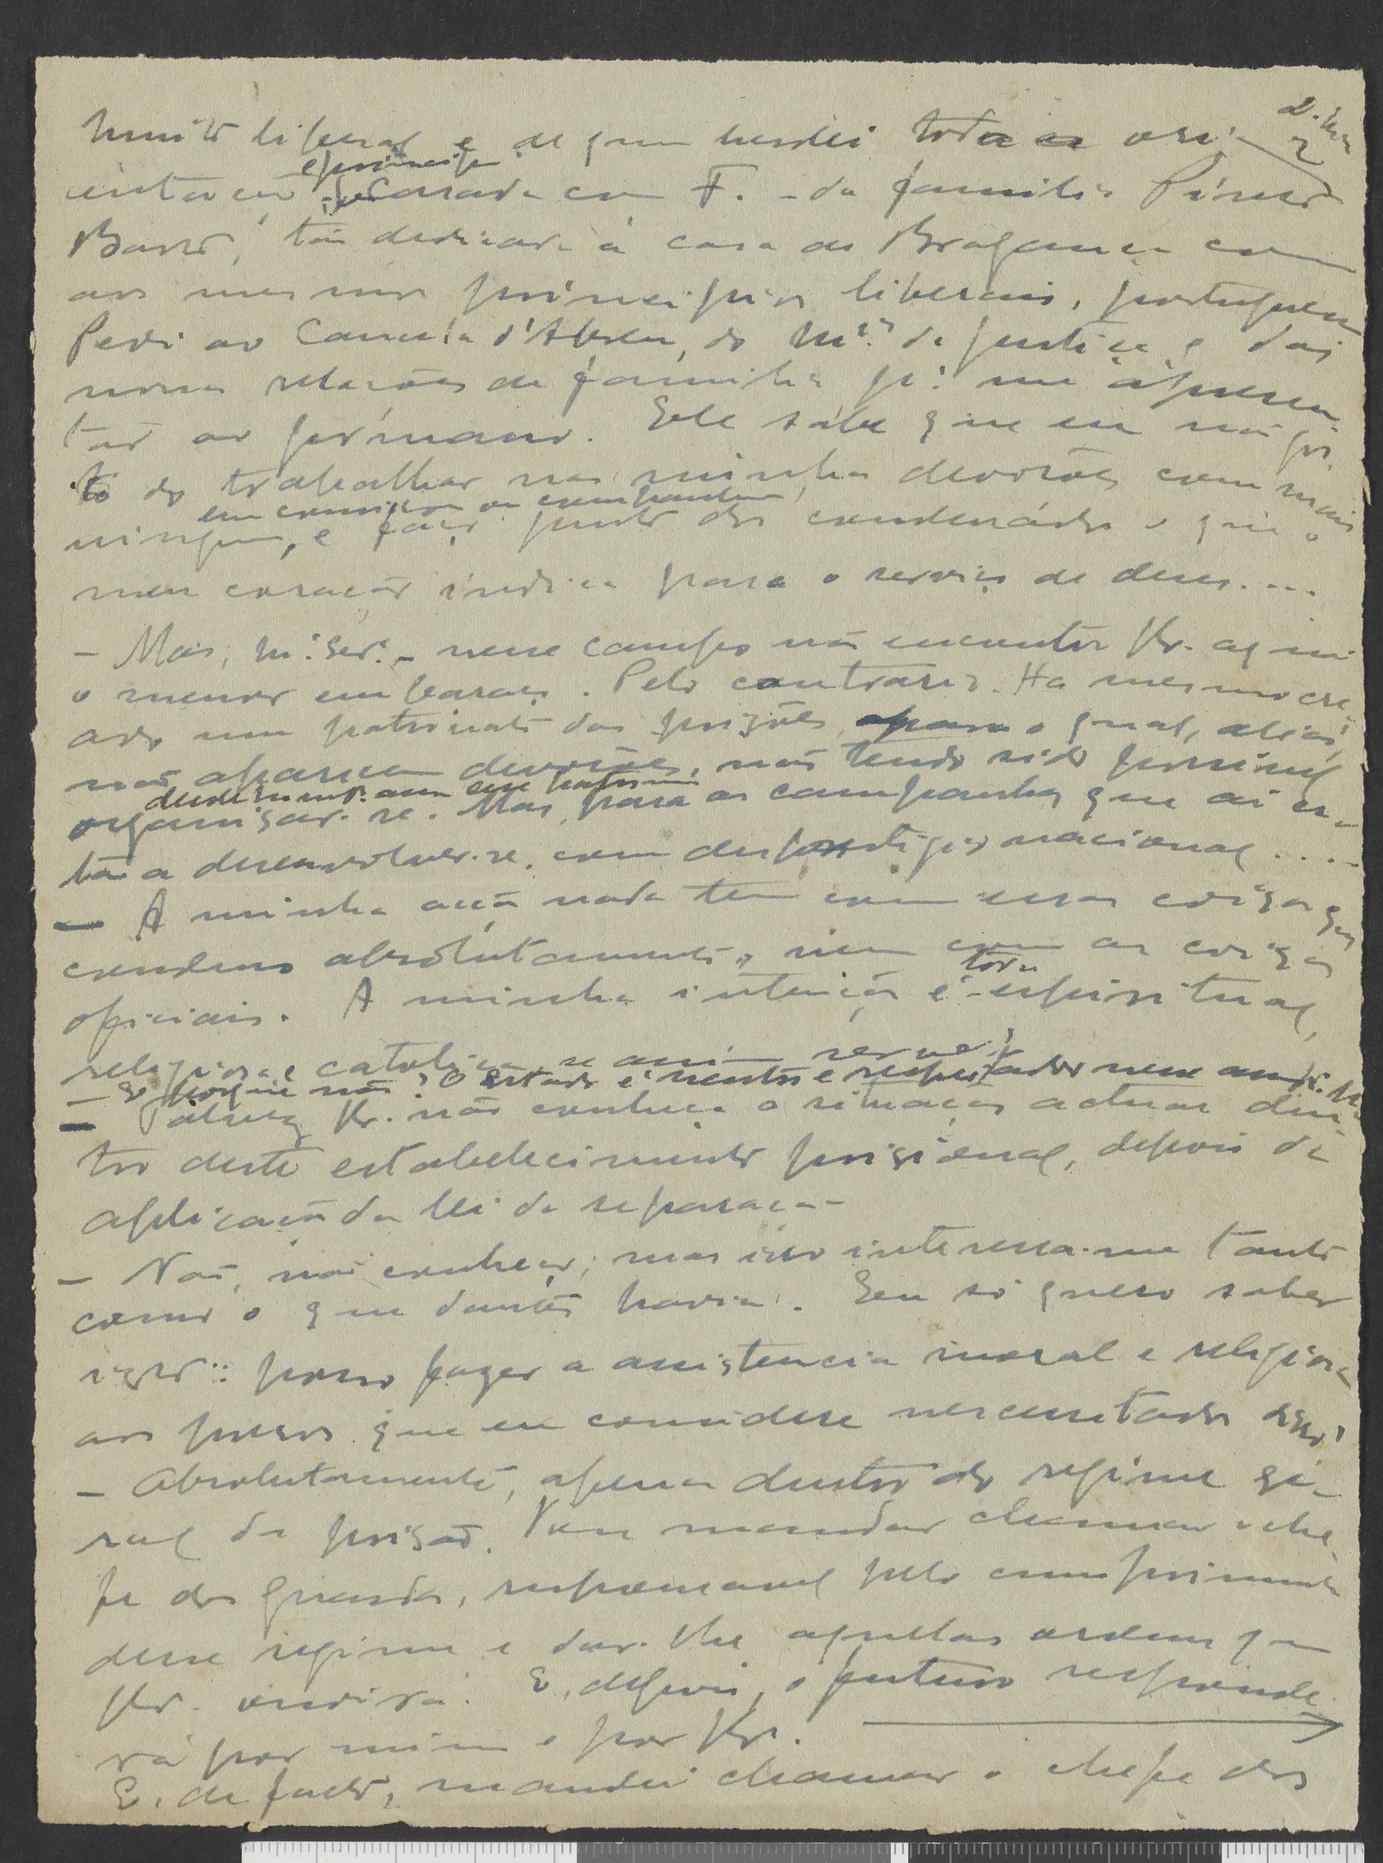 muito liberal e de quem herdei toda a ori-
entação e principios, casada com F. - da familia Pinto
Basto, tão dedicada á casa de Bragança com
os mesmos principios liberais, portugueza
Pedi ao Cancela d'Abreu, do Mº da Justiça e das
nossas relações de familia pª me apresen
tar ao germano. Ele sabe que eu não gos
to de trabalhar nas minhas devoções com mais
ninguem, em comissões ou campanhas, e faço junto dos condenados o que o
meu coração indica para o serviço de deus....
- Mas, m. Srª. - nesse campo não encontra V. aqui
o menor embaraço. Pelo contrario. Ha mesmo cre
ado um patronato das prizões, para o qual, aliás,
não aparecem devoções, não tendo sido possivel
organisar-se. Mas, para as campanhas que ai es-
tão a desenvolver-se, com desprestigio nacional....
- A minha acção nada tem com essas coizas que
condeno absolutamente, nem com as coizas
oficiais. A minha intenção é toda espiritual,
religiosa e catolica, se assim servir?
- E porque não? O Estado é neutro e respeitador
- Talvez V. não conheça a situação actual den-
tro deste estabelecimento prisional, depois da
aplicação da lei da separação
- Não, não conheço; mas isso interessa-me tanto
como o que dantes havia. Eu só quero saber
isto: posso fazer a assistencia moral e religiosa
aos presos que eu considere necessitados disso?
- Absolutamente, apenas dentro do regime ge-
ral da prisão. Vou mandar chamar o che-
fe dos guardas, responsavel pelo cumprimento
desse regime e dar-lhe aquelas ordens que
V. ouvirá. E, depois, o futuro responde-
rá por mim e por V.
E, de facto, mandei chamar o chefe dos